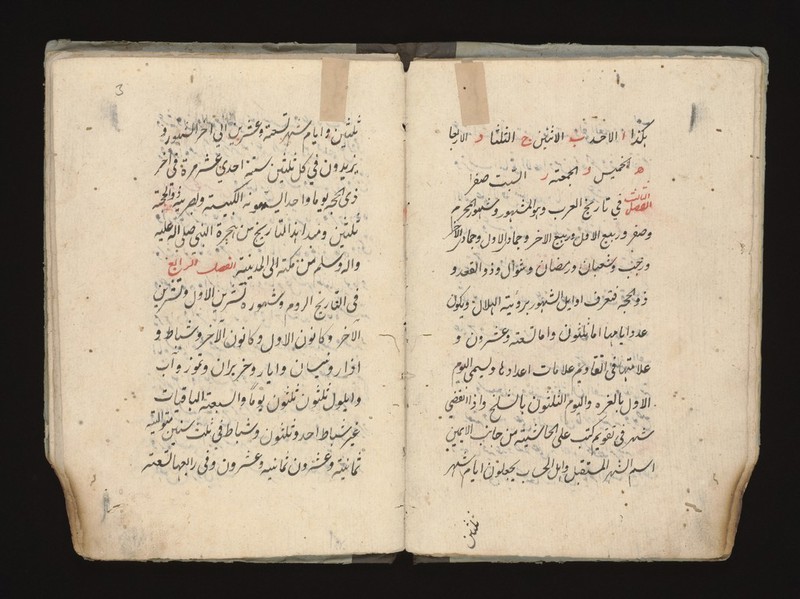 هكذا ا الاحد ب الاثنين ج الثلثا د الاربعا
ه الخميس و الجمعة ز السبت صفرا
الفصل الثالث في تاريخ العرب وهو المشهور وشهوره محرم
وصفر وربيع الاول وربيع الاخر وجماد الاول وجماد الاخر
ورجب وشعبان ورمضان وشوال وذو القعد و
ذو الحجه فتعرف اوايل الشهور برؤية الهلال ويكون
عدد ايامها اما ثلثون واما تسعة وعشرون و
علامتها في التقاويم علامات اعدادها ويسمى اليوم
الاول بالغره واليوم الثلثون بالسلخ واذا انقضى
شهر في تقويم كتب على الحاشية من جانب الايمن
اسم الشهر المستقبل واهل الحساب يجعلون ايام شهر
ثلثين
3
ثلثين وايام شهر تسعة وعشرين الى اخر الشهور و
يزيدون في كل ثلثين سنة احدى عشر مرة في اخر
ذي الحجه يوما واحدا يسمونه الكبيسة ذو الحجة
ثلثين ومبدا هذا التاريخ من هجرة النبي صلى الله عليه
واله وسلم من مكة الى المدينة الفصل الرابع
في التاريخ الروم وشهوره تشرين الاول وتشرين
الآخر وكانون الاول وكانون الآخر وشباط و
اذار ونيسان وايار وحزيران وتموز وآب
وايلول ثلثون ثلثون يوما والسبعة الباقيات
غير شباط احد وثلثون وشباط في ثلث سنين متوالية
ثمانية وعشرون ثمانية وعشرون وفي رابعها تسعة